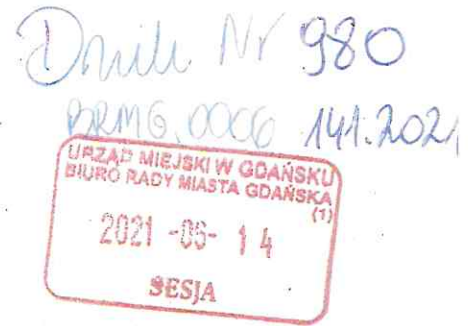 Druk Nr 980
BRMG.0006.141.2021
URZĄD MIEJSKI W GDAŃSKU
BIURO RADY MIASTA GDAŃSKA
(1)
2021 -05- 14
SESJA